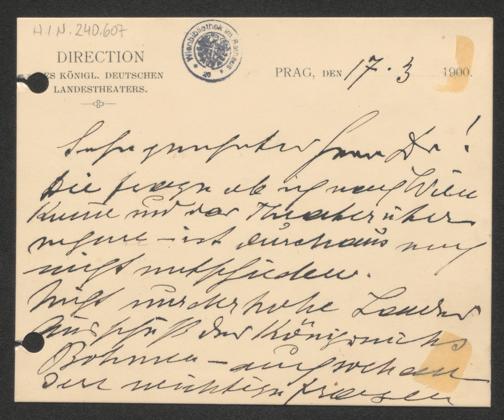 H.I.N. 240.607
DIRECTION
DES KÖNIGL. DEUTSCHEN
LANDESTHEATERS.
Wienbibliothek im Rathaus
PRAG, DEN 17. 3 1900.
Sehr geehrter Herr Dr!
Die Frage ob ich nach Wien
komme und das Theater über
nehme – ist durchaus noch
nicht entschieden.
Nicht nur der hohe Landes
Ausschuß des Königreichs
Böhmen –
wichtigen Fragen